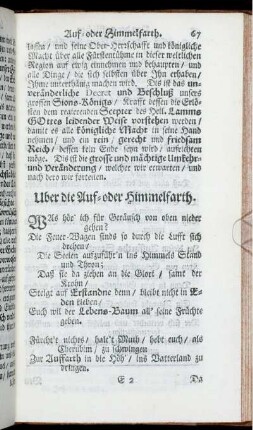 Auf- oder Himmelfarth. 67
lassen / und seine Ober-Herrschafft und königliche
Macht über alle Fürstenthüme in dieser weltlichen
Region auf ewig einnehmen und behaupten / und
alle Dinge / die sich selbsten über Ihn erhaben /
Ihme unterthänig machen wird. Dis ist das un-
veränderliche Decret und Beschluß unsers
grossen Sions-Königs / Krafft dessen die Erlö-
sten dem regierenden Scepter des Hell. Lamms
GOttes leidender Weise vorstehen werden /
damit es alle königliche Macht in seine Hand
nehmen / und ein rein / gerecht und friedsam
Reich / dessen kein Ende seyn wird / aufrichten
möge. Dis ist die grosse und mächtige Umkehr-
und Veränderung / welcher wir erwarten / und
nach dero wir forteilen.
Uber die Auf- oder Himmelfarth.
WAs hör' ich für Geräusch von oben nieder
gehen?
Die Feuer-Wagen sinds so durch die Lufft sich
drehen /
Die Seelen aufzuführ'n ins Himmels Stand
und Thron;
Daß sie da ziehen an die Glori / samt der
Krohn /
Steigt auf Erstandne denn / bleibt nicht in E-
den stehen /
Euch wil der Lebens-Baum all' seine Früchte
geben.
Fürcht't nichts / halt't Muth / hebt euch / als
Cherubim / zu schwingen
Zur Auffarth in die Höh' / ins Vatterland zu
dringen.
E 2 Da